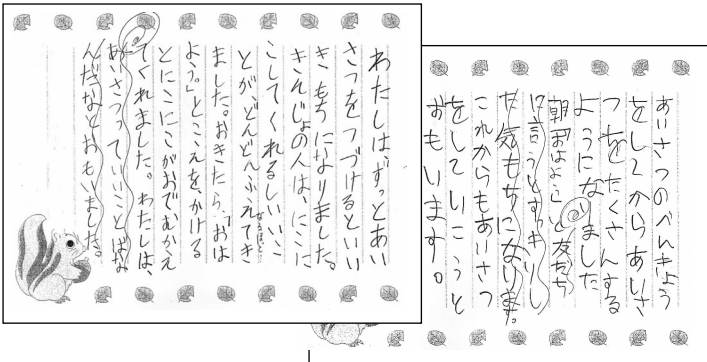 わたしは、ずっとあい
さつをつづけるといい
きもちになりました。
きんじょの人は、にこに
こしてくれるしいいこ
とが、どんどんふえてき
なるほど…
ました。おきたら、「おは
よう。」とこえを、かける
とにこにこがおでむかえ
てくれました。わたしは、
あいさつっていいことばな
んだなとおもいました。
あいさつのべんきょう
をしてからあいさ
つをたくさんする
ようになりました
朝「おはよう」と友だち
に言うとすっきりし
た気もちになります。
これからもあいさつ
をしていこうと
おもいます。